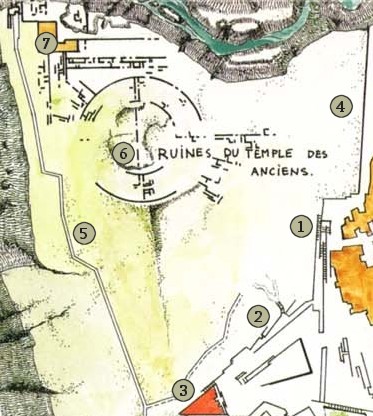 7
4
6
RUINES DU TEMPLE DES
ANCIENS.
1
5
2
3